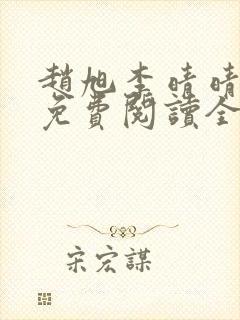 趙旭李晴晴
免費閱讀全
宋宏謀